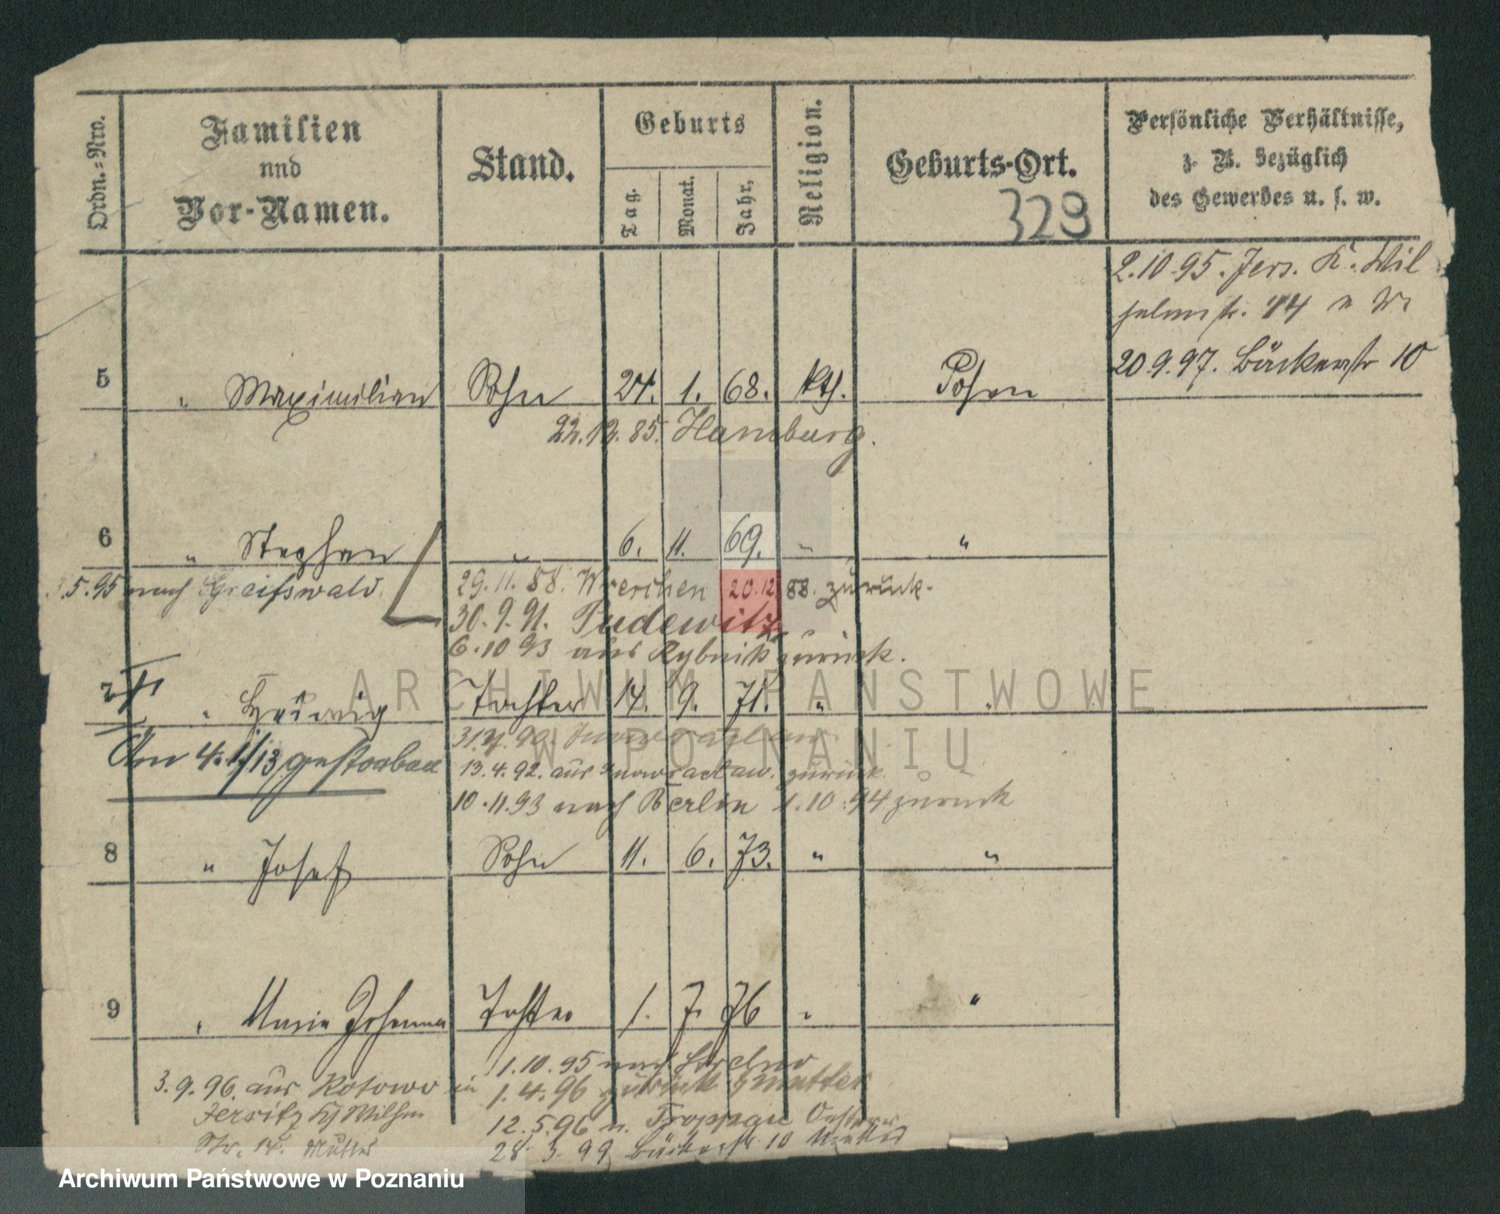 Ordn.-Nro.
Familien
und
Vor-Namen.
Stand.
Geburts
Tag.
Monat.
Jahr.
Religion.
Geburts-Ort.
Persönliche Verhältnisse,
z. B. bezüglich
des Gewerbes u. s. w.
329
2.10.95. Jers. K. Wil
helmstr. 14
20.9.97. Bäckerstr 10
5 " Maximilian Sohn 24. 1. 68. kth. Posen
22.12.85. Hamburg.
6 " Stephan " 6. 11. 69. " "
.5.95 nach Greifswald.
29.11.88. Wreschen 20.12 88. zurück.
30.9.91. Pudewitz
6.10 93 aus Rybnik zurück.
7 " Hedwig Tochter 14. 9. 71. " "
Am 4.1/13 gestorben
13.4.92. aus Inowraclaw. zurück
10.11.93 nach Berlin 1.10.94 zurück
8 " Josef Sohn 11. 6. 73. " "
9 " Marie Johanna Tochter 1. 7. 76 " "
1.10.95 nach
3.9.96. aus Kotowo in
Jersitz Wilhm
Str. 14. Mutter
1.4.96 zurück z Mutter
12.5.96 n. Troppau
28.3.99 Bäckerstr 10 Mutter
ARCHIWUM PAŃSTWOWE
W POZNANIU
Archiwum Państwowe w Poznaniu